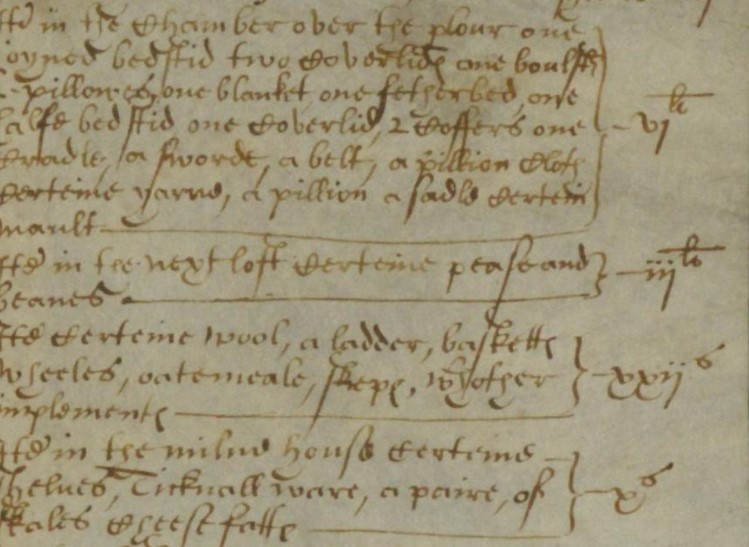 Itd in the Chamber over the plour one
joyned bedstid two Coverlids one boulster
2 pillowes, one blanket, one fetherbed, one
halfe bedstid one Coverlid, 2 Coffers one
Cradle, a sworde, a belt, a pillion Cloth
Certeine yarne, a pillion a sadle Certein
mault vi li
Itd in the next loft Certeine pease and
beanes iii li
Itd Certeine wool, a ladder, basketts
wheeles, oatemeale, skeps, other
implements xxii s
Itd in the milne house Certeine
shelves, Ticknall ware, a paire, of
skales Cheesefatts x s